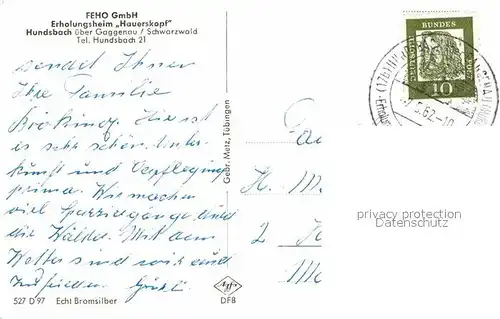 FEHO GmbH
Erholungsheim „Hauerskopf"
Hundsbach über Gaggenau / Schwarzwald
Tel. Hundsbach 21
sendet Ihnen
Ihre Familie
Hier ist
es sehr schön. Unter-
kunft und Verpflegung
prima. Wir machen
viel Spaziergänge durch
die Wälder. Mit dem
Wetter sind wir auch
zufrieden.
527 D 97 Echt Bromsilber
Gebr. Metz, Tübingen
Agfa
DFB
DEUTSCHE
BUNDES
POST
10
Fa
H. M
2
privacy protection
Datenschutz